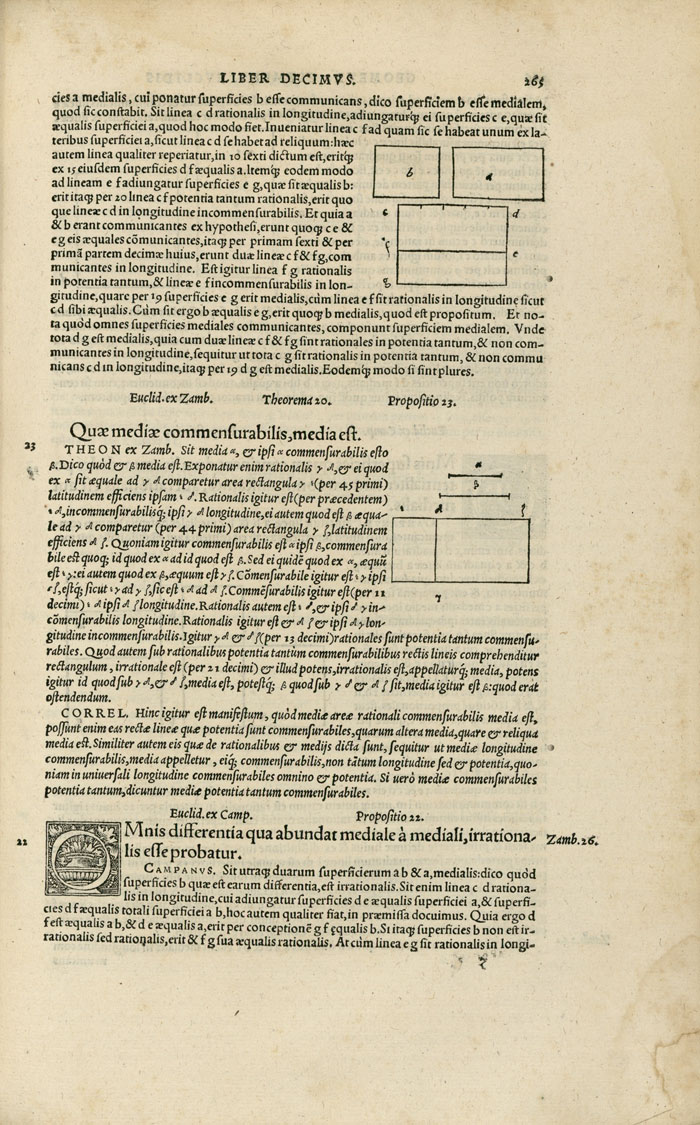 LIBER DECIMVS. 265
cies a medialis, cui ponatur superficies b esse communicans, dico superficiem b esse medialem,
quod sic constabit. Sit linea c d rationalis in longitudine, adiungaturq; ei superficies c e, quæ sit
æqualis superficiei a, quod hoc modo fiet. Inueniatur linea c f ad quam sic se habeat unum ex la-
teribus superficiei a, sicut linea c d se habet ad reliquum: hæc
autem linea qualiter reperiatur, in 10 sexti dictum est, eritq;
ex 15 eiusdem superficies d f æqualis a. Itemq; eodem modo
ad lineam e f adiungatur superficies e g, quæ sit æqualis b:
erit itaq; per 20 linea c f potentia tantum rationalis, erit quo
que lineæ c d in longitudine incommensurabilis. Et quia a
& b erant communicantes ex hypothesi, erunt quoq; c e &
e g eis æquales cōmunicantes, itaq; per primam sexti & per
primā partem decimæ huius, erunt duæ lineæ c f & f g, com
municantes in longitudine. Est igitur linea f g rationalis
in potentia tantum, & lineæ e f incommensurabilis in lon-
gitudine, quare per 19 superficies e g erit medialis, cùm linea e f sit rationalis in longitudine sicut
c d sibi æqualis. Cùm sit ergo b æqualis e g, erit quoq; b medialis, quod est propositum. Et no-
ta quòd omnes superficies mediales communicantes, componunt superficiem medialem. Vnde
tota d g est medialis, quia cum duæ lineæ c f & f g sint rationales in potentia tantum, & non com-
municantes in longitudine, sequitur ut tota c g sit rationalis in potentia tantum, & non commu
nicans c d in longitudine, itaq; per 19 d g est medialis. Eodemq; modo si sint plures.
b
a
c
d
f
e
g
Euclid. ex Zamb. Theorema 20. Propositio 23.
Quæ mediæ commensurabilis, media est.
23
THEON ex Zamb. Sit media α, & ipsi α commensurabilis esto
β. Dico quòd & β media est. Exponatur enim rationalis γ δ, & ei quod
ex α sit æquale ad γ δ comparetur area rectangula γ ε (per 45 primi)
latitudinem efficiens ipsam ε δ. Rationalis igitur est (per præcedentem)
ε δ, incommensurabilisq; ipsi γ δ longitudine, ei autem quod est β æqua-
le ad γ δ comparetur (per 44 primi) area rectangula γ ζ, latitudinem
efficiens δ ζ. Quoniam igitur commensurabilis est α ipsi β, commensura
bile est quoq; id quod ex α ad id quod est β. Sed ei quidē quod ex α, æquū
est ε γ: ei autem quod ex β, æquum est γ ζ. Cōmensurabile igitur est ε γ ipsi
γ ζ, estq; sicut ε γ ad γ ζ, sic est ε δ ad δ ζ. Commēsurabilis igitur est (per 11
decimi) ε δ ipsi δ ζ longitudine. Rationalis autem est ε δ, & ipsi δ γ in-
cōmensurabilis longitudine. Rationalis igitur est & δ ζ & ipsi δ γ lon-
gitudine incommensurabilis. Igitur γ δ & δ ζ (per 13 decimi) rationales sunt potentia tantum commensu-
rabiles. Quod autem sub rationalibus potentia tantum commensurabilibus rectis lineis comprehenditur
rectangulum, irrationale est (per 21 decimi) & illud potens, irrationalis est, appellaturq; media, potens
igitur id quod sub γ δ, & δ ζ, media est, potestq; β quod sub γ δ & δ ζ sit, media igitur est β: quod erat
ostendendum.
α
β
ε
δ
ζ
γ
CORREL. Hinc igitur est manifestum, quòd mediæ areæ rationali commensurabilis media est,
possunt enim eas rectæ lineæ quæ potentia sunt commensurabiles, quarum altera media, quare & reliqua
media est. Similiter autem eis quæ de rationalibus & medijs dicta sunt, sequitur ut mediæ longitudine
commensurabilis, media appelletur, eiq; commensurabilis, non tātum longitudine sed & potentia, quo-
niam in uniuersali longitudine commensurabiles omnino & potentia. Si uerò mediæ commensurabiles
potentia tantum, dicuntur mediæ potentia tantum commensurabiles.
Euclid. ex Camp. Propositio 22.
22
OMnis differentia qua abundat mediale à mediali, irrationa- Zamb. 26.
lis esse probatur.
CAMPANVS. Sit utraq; duarum superficierum a b & a, medialis: dico quòd
superficies b quæ est earum differentia, est irrationalis. Sit enim linea c d rationa-
lis in longitudine, cui adiungatur superficies d e æqualis superficiei a, & superfi-
cies d f æqualis totali superficiei a b, hoc autem qualiter fiat, in præmissa docuimus. Quia ergo d
f est æqualis a b, & d e æqualis a, erit per conceptionē g f ęqualis b. Si itaq; superficies b non est ir-
rationalis sed rationalis, erit & f g sua æqualis rationalis. At cùm linea e g sit rationalis in longi-